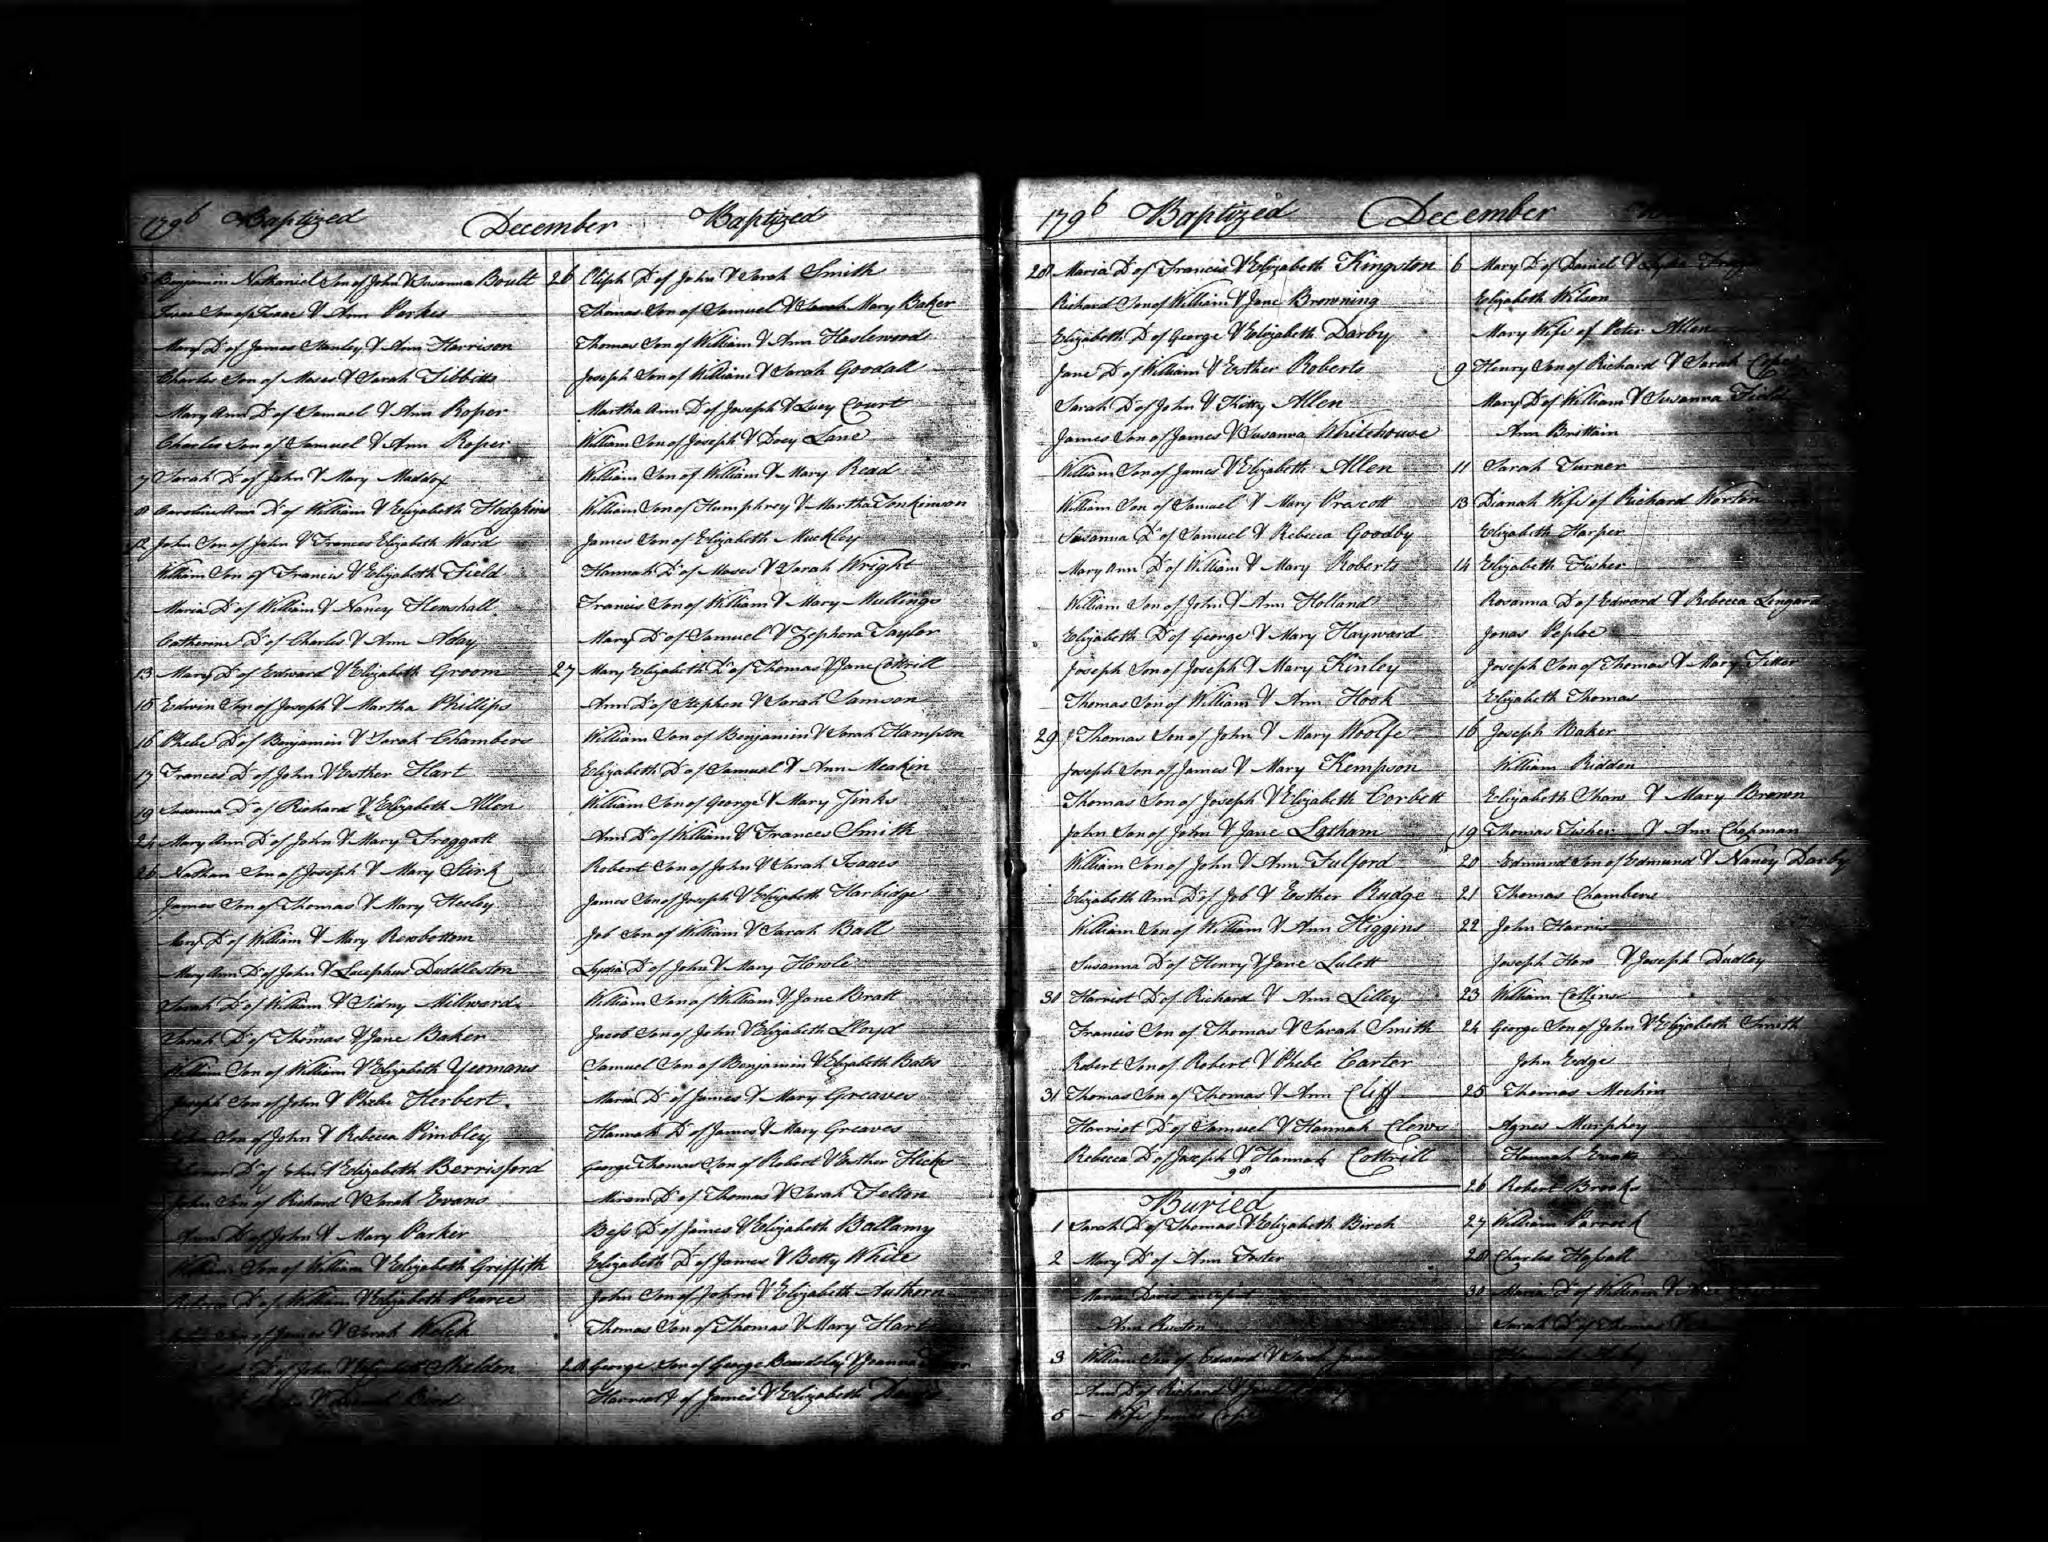 1796 Baptized December Baptized
5 Benjamin Nathaniel Son of John & Susanna Boult
Isaac Son of Isaac & Ann Parkes
Mary Dr of James Stanley & Ann Harrison
Charles Son of Moses & Sarah Tibbitts
Mary Ann Dr of Samuel & Ann Roper
Charles Son of Samuel & Ann Roper
7 Sarah Dr of John & Mary Maddox
8 Caroline Ann Dr of William & Elizabeth Hodgkins
12 John Son of John & Frances Elizabeth Ward
William Son of Francis & Elizabeth Field
Maria Dr of William & Nancy Henshall
Catherine Dr of Charles & Ann Aday
13 Mary Dr of Edward & Elizabeth Groom
15 Edwin Son of Joseph & Martha Phillips
16 Phebe Dr of Benjamin & Sarah Chambers
17 Frances Dr of John & Esther Hart
19 Susanna Dr of Richard & Elizabeth Allen
24 Mary Ann Dr of John & Mary Froggatt
26 Nathan Son of Joseph & Mary Stirk
James Son of Thomas & Mary Heeley
Mary Dr of William & Mary Rowbottom
Mary Ann Dr of John & Duddleston
Sarah Dr of William & Sidney Milward
Sarah Dr of Thomas & Jane Baker
William Son of William & Elizabeth Yeomans
Joseph Son of John & Phebe Herbert
Son of John & Rebecca Pimbley
Dr of John & Elizabeth Berrisford
John Son of Richard & Sarah Evans
Ann Dr of John & Mary Parker
William Son of William & Elizabeth Griffith
Dr of William & Elizabeth Pearce
Son of James & Sarah Welch
Dr of John & Elizabeth Sheldon
& Bird
26 Dr of John & Sarah Smith
Thomas Son of Samuel & Sarah Mary Baker
Thomas Son of William & Ann Haslewood
Joseph Son of William & Sarah Goodall
Martha Ann Dr of Joseph & Lucy Court
William Son of Joseph & Lane
William Son of William & Mary Read
William Son of Humphrey & Martha Tonkinson
James Son of Elizabeth Muckley
Hannah Dr of Moses & Sarah Wright
Francis Son of William & Mary Mullings
Mary Dr of Samuel & Zephora Taylor
27 Mary Elizabeth Dr of Thomas & Jane Cottrill
Ann Dr of Stephen & Sarah Samson
William Son of Benjamin & Sarah Hampson
Elizabeth Dr of Samuel & Ann Meakin
William Son of George & Mary Jinks
Ann Dr of William & Frances Smith
Robert Son of John & Sarah Isaacs
James Son of Joseph & Elizabeth Harbidge
Job Son of William & Sarah Ball
Lydia Dr of John & Mary Howle
William Son of William & Jane Bratt
Jacob Son of John & Elizabeth Lloyd
Samuel Son of Benjamin & Elizabeth Bates
Maria Dr of James & Mary Greaves
Hannah Dr of James & Mary Greaves
George Thomas Son of Robert & Esther Hicks
Miriam Dr of Thomas & Sarah Felton
Bess Dr of James & Elizabeth Ballamy
Elizabeth Dr of James & Betty White
John Son of John & Elizabeth Authern
Thomas Son of Thomas & Mary Hart
28 George Son of George & Joanna
Harriet Dr of James & Elizabeth
1796 Baptized December
28 Maria Dr of Francis & Elizabeth Kingston
Richard Son of William & Jane Browning
Elizabeth Dr of George & Elizabeth Darby
Jane Dr of William & Esther Roberts
Sarah Dr of John & Kitty Allen
James Son of James & Susanna Whitehouse
William Son of James & Elizabeth Allen
William Son of Samuel & Mary Prescott
Susanna Dr of Samuel & Rebecca Goodby
Mary Ann Dr of William & Mary Roberts
William Son of John & Ann Holland
Elizabeth Dr of George & Mary Hayward
Joseph Son of Joseph & Mary Kinley
Thomas Son of William & Ann Hook
29 Thomas Son of John & Mary Woolfe
Joseph Son of James & Mary Kempson
Thomas Son of Joseph & Elizabeth Corbett
John Son of John & Jane Latham
William Son of John & Ann Fulford
Elizabeth Ann Dr of Job & Esther Rudge
William Son of William & Ann Higgins
Susanna Dr of Henry & Jane Lulett
30 Harriot Dr of Richard & Ann Lilley
Francis Son of Thomas & Sarah Smith
Robert Son of Robert & Phebe Carter
31 Thomas Son of Thomas & Ann Cliff
Harriot Dr of Samuel & Hannah Clews
Rebecca Dr of Joseph & Hannah Cottrill
98
Buried
1 Sarah Dr of Thomas & Elizabeth Birch
2 Mary Dr of Ann Foster
Ann
3 William Son of Edward & Sarah
Ann Dr of Richard &
5 Wife James
6 Mary Dr of Daniel & Lydia
Elizabeth Wilson
Mary Wife of Peter Allen
9 Henry Son of Richard & Sarah
Mary Dr of William & Susanna Field
Ann Brittain
11 Sarah Turner
13 Dianah Wife of Richard Worton
Elizabeth Harper
14 Elizabeth Fisher
Rosanna Dr of Edward & Rebecca Lingard
Jonas Peploe
Joseph Son of Thomas & Mary Fitter
Elizabeth Thomas
16 Joseph Baker
William Ridden
Elizabeth Shaw & Mary Brown
19 Thomas Fisher & Ann Chapman
20 Edmund Son of Edmund & Nancy Darby
21 Thomas Chambers
22 John Harris
Joseph How & Joseph Dudley
23 William Collins
24 George Son of John & Elizabeth Smith
John Edge
25 Thomas Meekin
Agnes Murphey
Hannah
26 Robert Brooks
27 William Parrock
28 Charles Hassall
30 Maria Dr of William &
Sarah Dr of Thomas